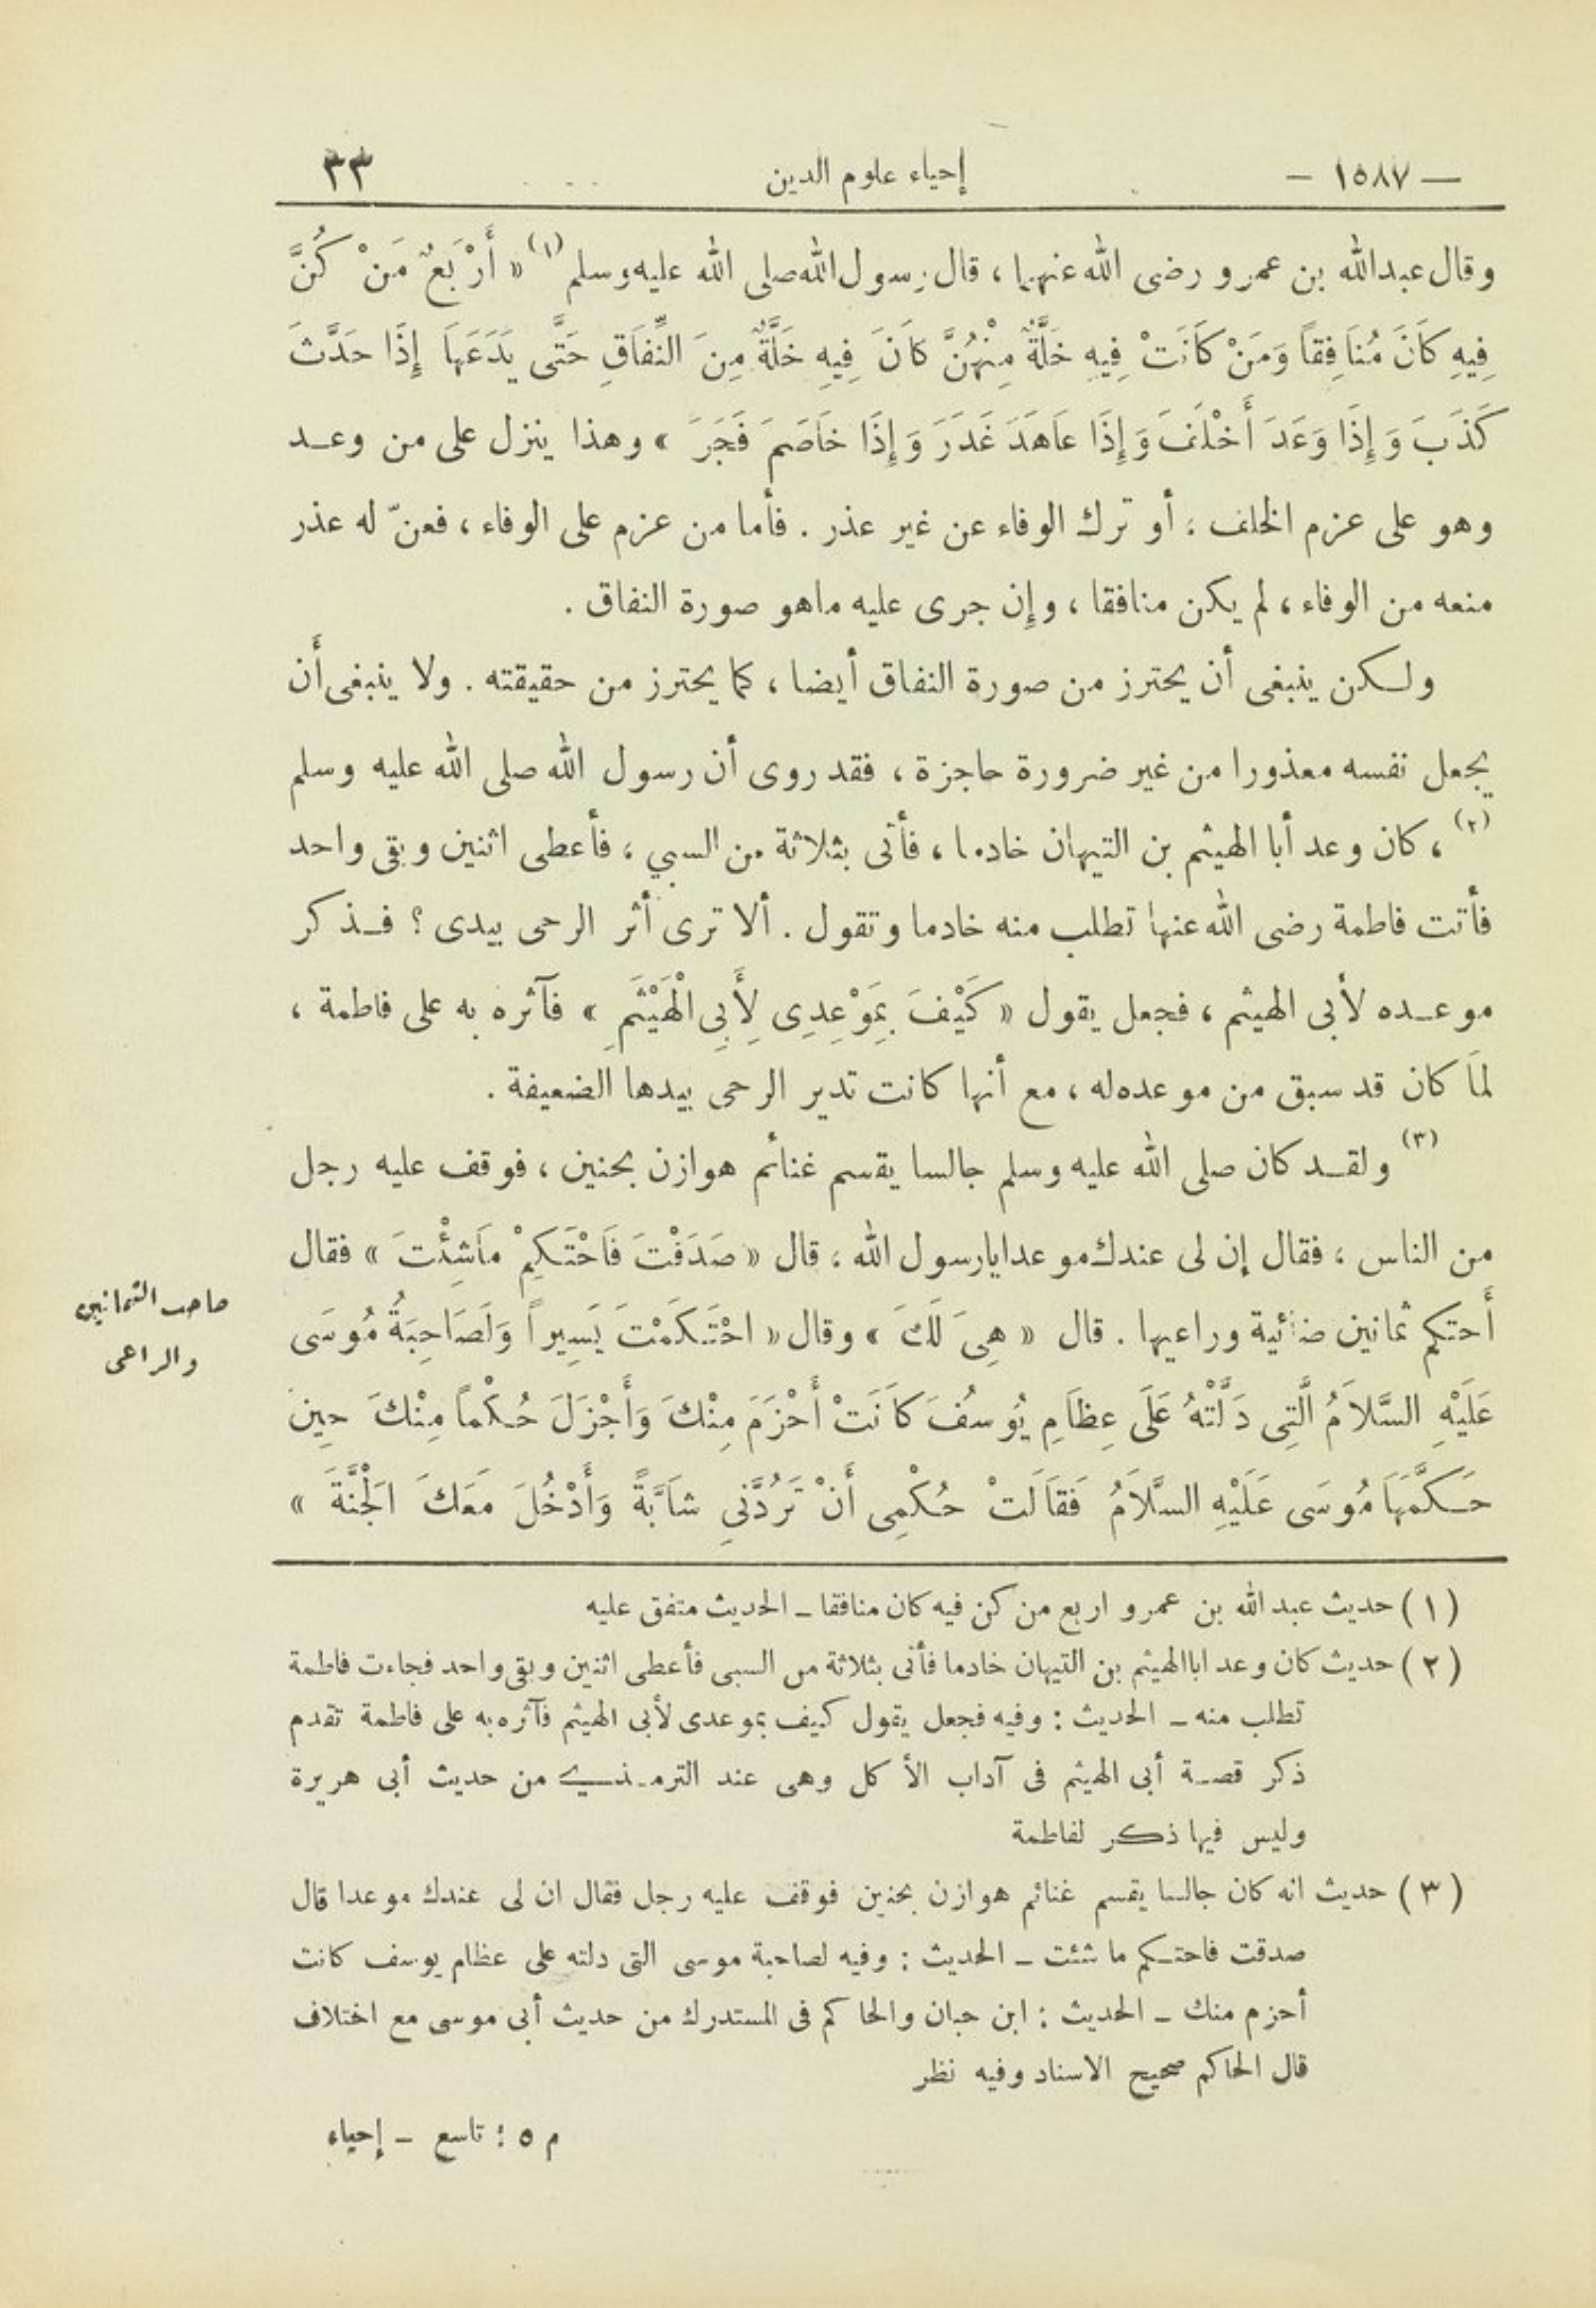 — ١٥٨٧ — إحياء علوم الدين ٣٣
وقال عبدالله بن عمرو رضى الله عنهما ، قال رسول الله صلى الله عليه وسلم (١) « أَرْبَعٌ مَنْ كُنَّ
فِيهِ كَانَ مُنَافِقاً وَمَنْ كَانَتْ فِيهِ خَلَّةٌ مِنْهُنَّ كَانَ فِيهِ خَلَّةٌ مِنَ النِّفَاقِ حَتَّى يَدَعَهَا إِذَا حَدَّثَ
كَذَبَ وَإِذَا وَعَدَ أَخْلَفَ وَإِذَا عَاهَدَ غَدَرَ وَإِذَا خَاصَمَ فَجَرَ » وهذا ينزل على من وعد
وهو على عزم الخلف ؛ أو ترك الوفاء عن غير عذر . فأما من عزم على الوفاء ، فعنّ له عذر
منعه من الوفاء ، لم يكن منافقا ، وإن جرى عليه ماهو صورة النفاق .
ولكن ينبغى أن يحترز من صورة النفاق أيضا ، كما يحترز من حقيقته . ولا ينبغى أن
يجعل نفسه معذورا من غير ضرورة حاجزة ، فقد روى أن رسول الله صلى الله عليه وسلم
(٢) ، كان وعد أبا الهيثم بن التيهان خادما ، فأتى بثلاثة من السبي ، فأعطى اثنين وبقى واحد
فأتت فاطمة رضى الله عنها تطلب منه خادما وتقول . ألا ترى أثر الرحى بيدى ؟ فذكر
موعده لأبى الهيثم ، فجعل يقول « كَيْفَ بِمَوْعِدِى لِأَبِي الْهَيْثَمِ » فآثره به على فاطمة ،
لمَا كان قد سبق من موعده له ، مع أنها كانت تدير الرحى بيدها الضعيفة .
(٣) ولقد كان صلى الله عليه وسلم جالسا يقسم غنائم هوازن بحنين ، فوقف عليه رجل
من الناس ، فقال إن لى عندك موعدا يارسول الله ، قال « صَدَقْتَ فَاحْتَكِمْ مَاشِئْتَ » فقال
أحتكم ثمانين ضائنية وراعيها . قال « هِىَ لَكَ » وقال « احْتَكَمْتَ يَسِيراً وَلَصَاحِبَةُ مُوسَى
عَلَيْهِ السَّلاَمُ الَّتِى دَلَّتْهُ عَلَى عِظَامِ يُوسُفَ كَانَتْ أَحْزَمَ مِنْكَ وَأَجْزَلَ حُكْماً مِنْكَ حِينَ
حَكَّمَهَا مُوسَى عَلَيْهِ السَّلاَمُ فَقَالَتْ حُكْمِى أَنْ تَرُدَّنِي شَابَّةً وَأَدْخُلَ مَعَكَ الْجَنَّةَ »
صاحب الثمانين
والراعى
(١) حديث عبد الله بن عمرو اربع من كن فيه كان منافقا ـ الحديث متفق عليه
(٢) حديث كان وعد ابا الهيثم بن التيهان خادما فأتى بثلاثة من السبى فأعطى اثنين وبقى واحد فجاءت فاطمة
تطلب منه ـ الحديث : وفيه فجعل يقول كيف بموعدى لأبى الهيثم فآثره به على فاطمة تقدم
ذكر قصة أبى الهيثم فى آداب الأكل وهى عند الترمذي من حديث أبى هريرة
وليس فيها ذكر لفاطمة
(٣) حديث انه كان جالسا يقسم غنائم هوازن بحنين فوقف عليه رجل فقال ان لى عندك موعدا قال
صدقت فاحتكم ما شئت ـ الحديث : وفيه لصاحبة موسى التى دلته على عظام يوسف كانت
أحزم منك ـ الحديث : ابن حبان والحاكم فى المستدرك من حديث أبى موسى مع اختلاف
قال الحاكم صحيح الاسناد وفيه نظر
م ٥ : تاسع ـ إحياء